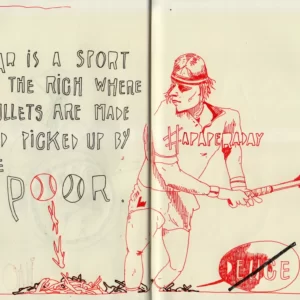 AR IS A SPORT
THE RICH WHERE
LLETS ARE MADE
D PICKED UP BY
E
POOR.
HAPAPERADAY
DELUGE